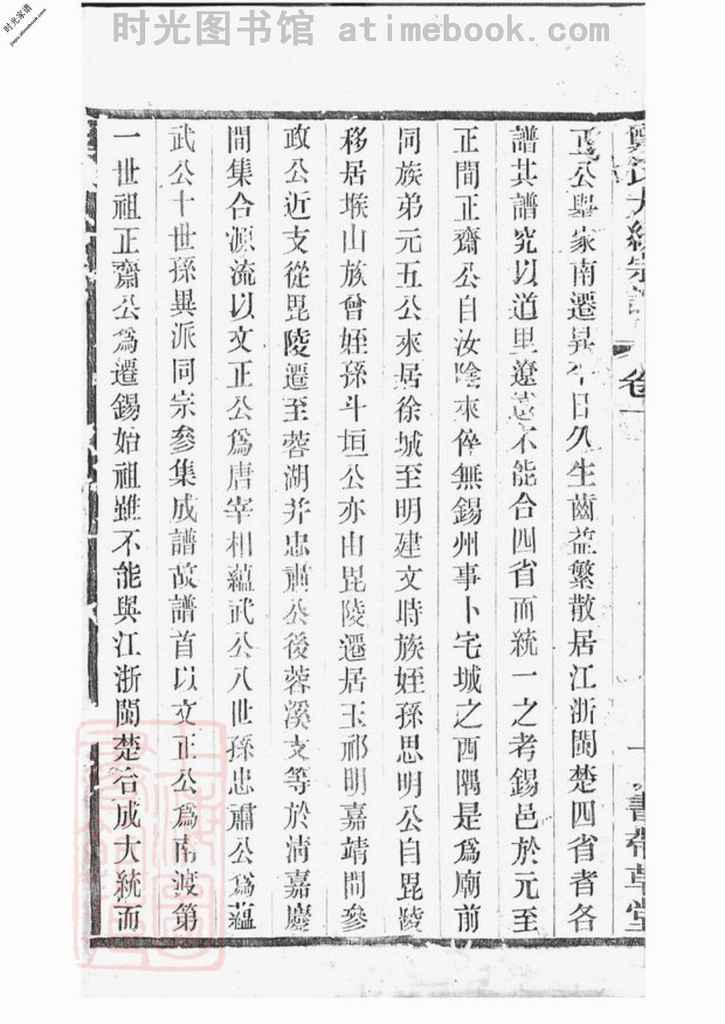 时光图书馆 atimebook.com
时光家谱
鄭氏大統宗譜 卷一 一 書帶草堂
正公舉家南遷異今日久生齒益繁散居江浙閩楚四省者各
譜其譜究以道里遼遠不能合四省而統一之考錫邑於元至
正間正齋公自汝陰來倅無錫州事卜宅城之西隅是為廟前
同族弟元五公來居徐城至明建文時族姪孫思明公自毘陵
移居堠山族曾姪孫斗垣公亦由毘陵遷居玉祁明嘉靖間參
政公近支從毘陵遷至蓉湖并忠肅公後蓉溪支等於清嘉慶
間集合源流以文正公為唐宰相蘊武公八世孫忠肅公為蘊
武公十世孫異派同宗參集成譜故譜首以文正公為南渡第
一世祖正齋公為遷錫始祖雖不能與江浙閩楚合成大統而